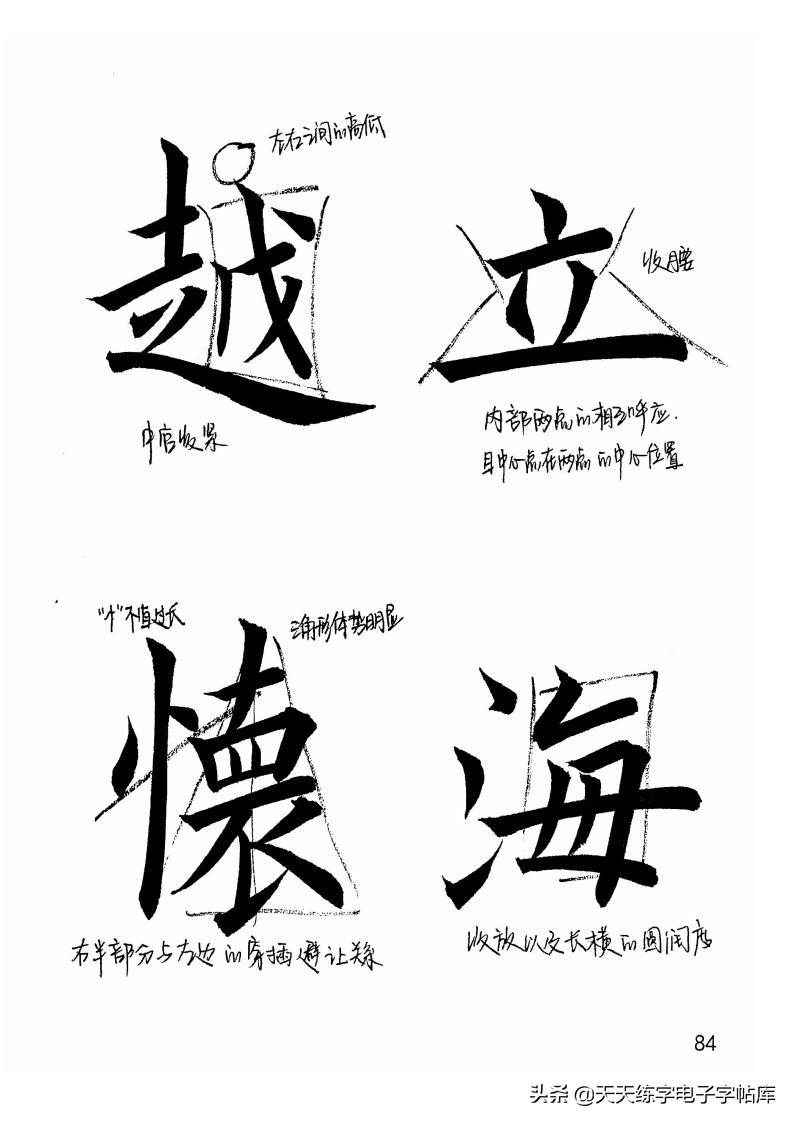 左右之间的高低
越
中宫收紧
立
收腰
内部两点的相互呼应.
且中心点在两点的中心位置
"忄"不宜过长
三角形体势明显
懷
右半部分与左边的穿插避让关系
海
收放以及长横的圆润度
84
头条 @天天练字电子字帖库